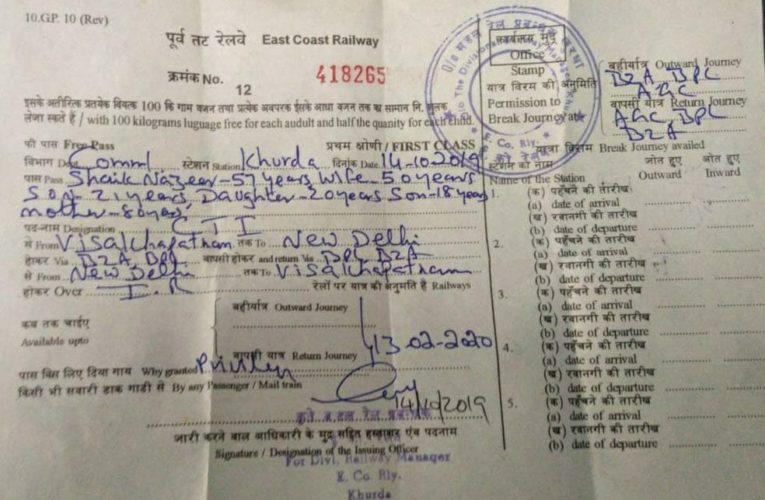 10.GP. 10 (Rev)
पूर्व तट रेलवे East Coast Railway
क्रमांक No. 12 418265
इसके अतिरिक्त प्रत्येक वियक्त 100 कि गाम वजन तथा प्रत्येक अवपरक इसके आधा वजन तक का सामान नि. शुलक
लेजा सकते हैं / with 100 kilograms luguage free for each audult and half the quanity for each child.
फी पास Free Pass प्रथम श्रोणी / FIRST CLASS
विभाग Dept. Comml स्टेशन Station Khurda दिनांक Date 14-10-2019
पास Pass Shaik Nazeer-57 years Wife-50 years
Son-21 years, Daughter-20 years Son-18 years
mother-80 years
पद-नाम Designation CTI
से From Visakhapatnam तक To New Delhi
होकर Via BZA, BPL वापसी होकर and return Via BPL BZA
से From New Delhi तक To Visakhapatnam
होकर Over I.R रेलों पर यात्र की अनुमति है Railways
बहीर्यात्र Outward Journey
कब तक चाईए
Available upto
वापसी यात्र Return Journey 13-02-2020
पास किस लिए दिया गाय Why granted
किसी भी सवारी डाक गाडी से By any Passenger / Mail train
14/10/2019
जारी करने वाल आधिकारी के मुद्र सहित हस्ताक्षर एंव पदनाम
Signature / Designation of the Issuing Officer
For Divl. Railway Manager
E. Co Rly.
Khurda
कार्यालय मुद्र
Office
Stamp
यात्र विरम की अनुमति
Permission to
Break Journey at
Co. Rly.
बहीर्यात्र Outward Journey
BZA, BPL
AGC
वापसी यात्र Return Journey
AGC, BPL
BZA
यात्रा विराम Break Journey availed
स्टेशन का नाम जोत हुए आते हुए
Name of the Station Outward Inward
1. (क) पहुँचने की तारीख
(a) date of arrival
(ख) रवानगी की तारीख
(b) date of departure
2. (क) पहुँचने की तारीख
(a) date of arrival
(ख) रवानगी की तारीख
(b) date of departure
3. (क) पहुँचने की तारीख
(a) date of arrival
(ख) रवानगी की तारीख
(b) date of departure
4. (क) पहुँचने की तारीख
(a) date of arrival
(ख) रवानगी की तारीख
(b) date of departure
5. (क) पहुँचने की तारीख
(a) date of arrival
(ख) रवानगी की तारीख
(b) date of departure